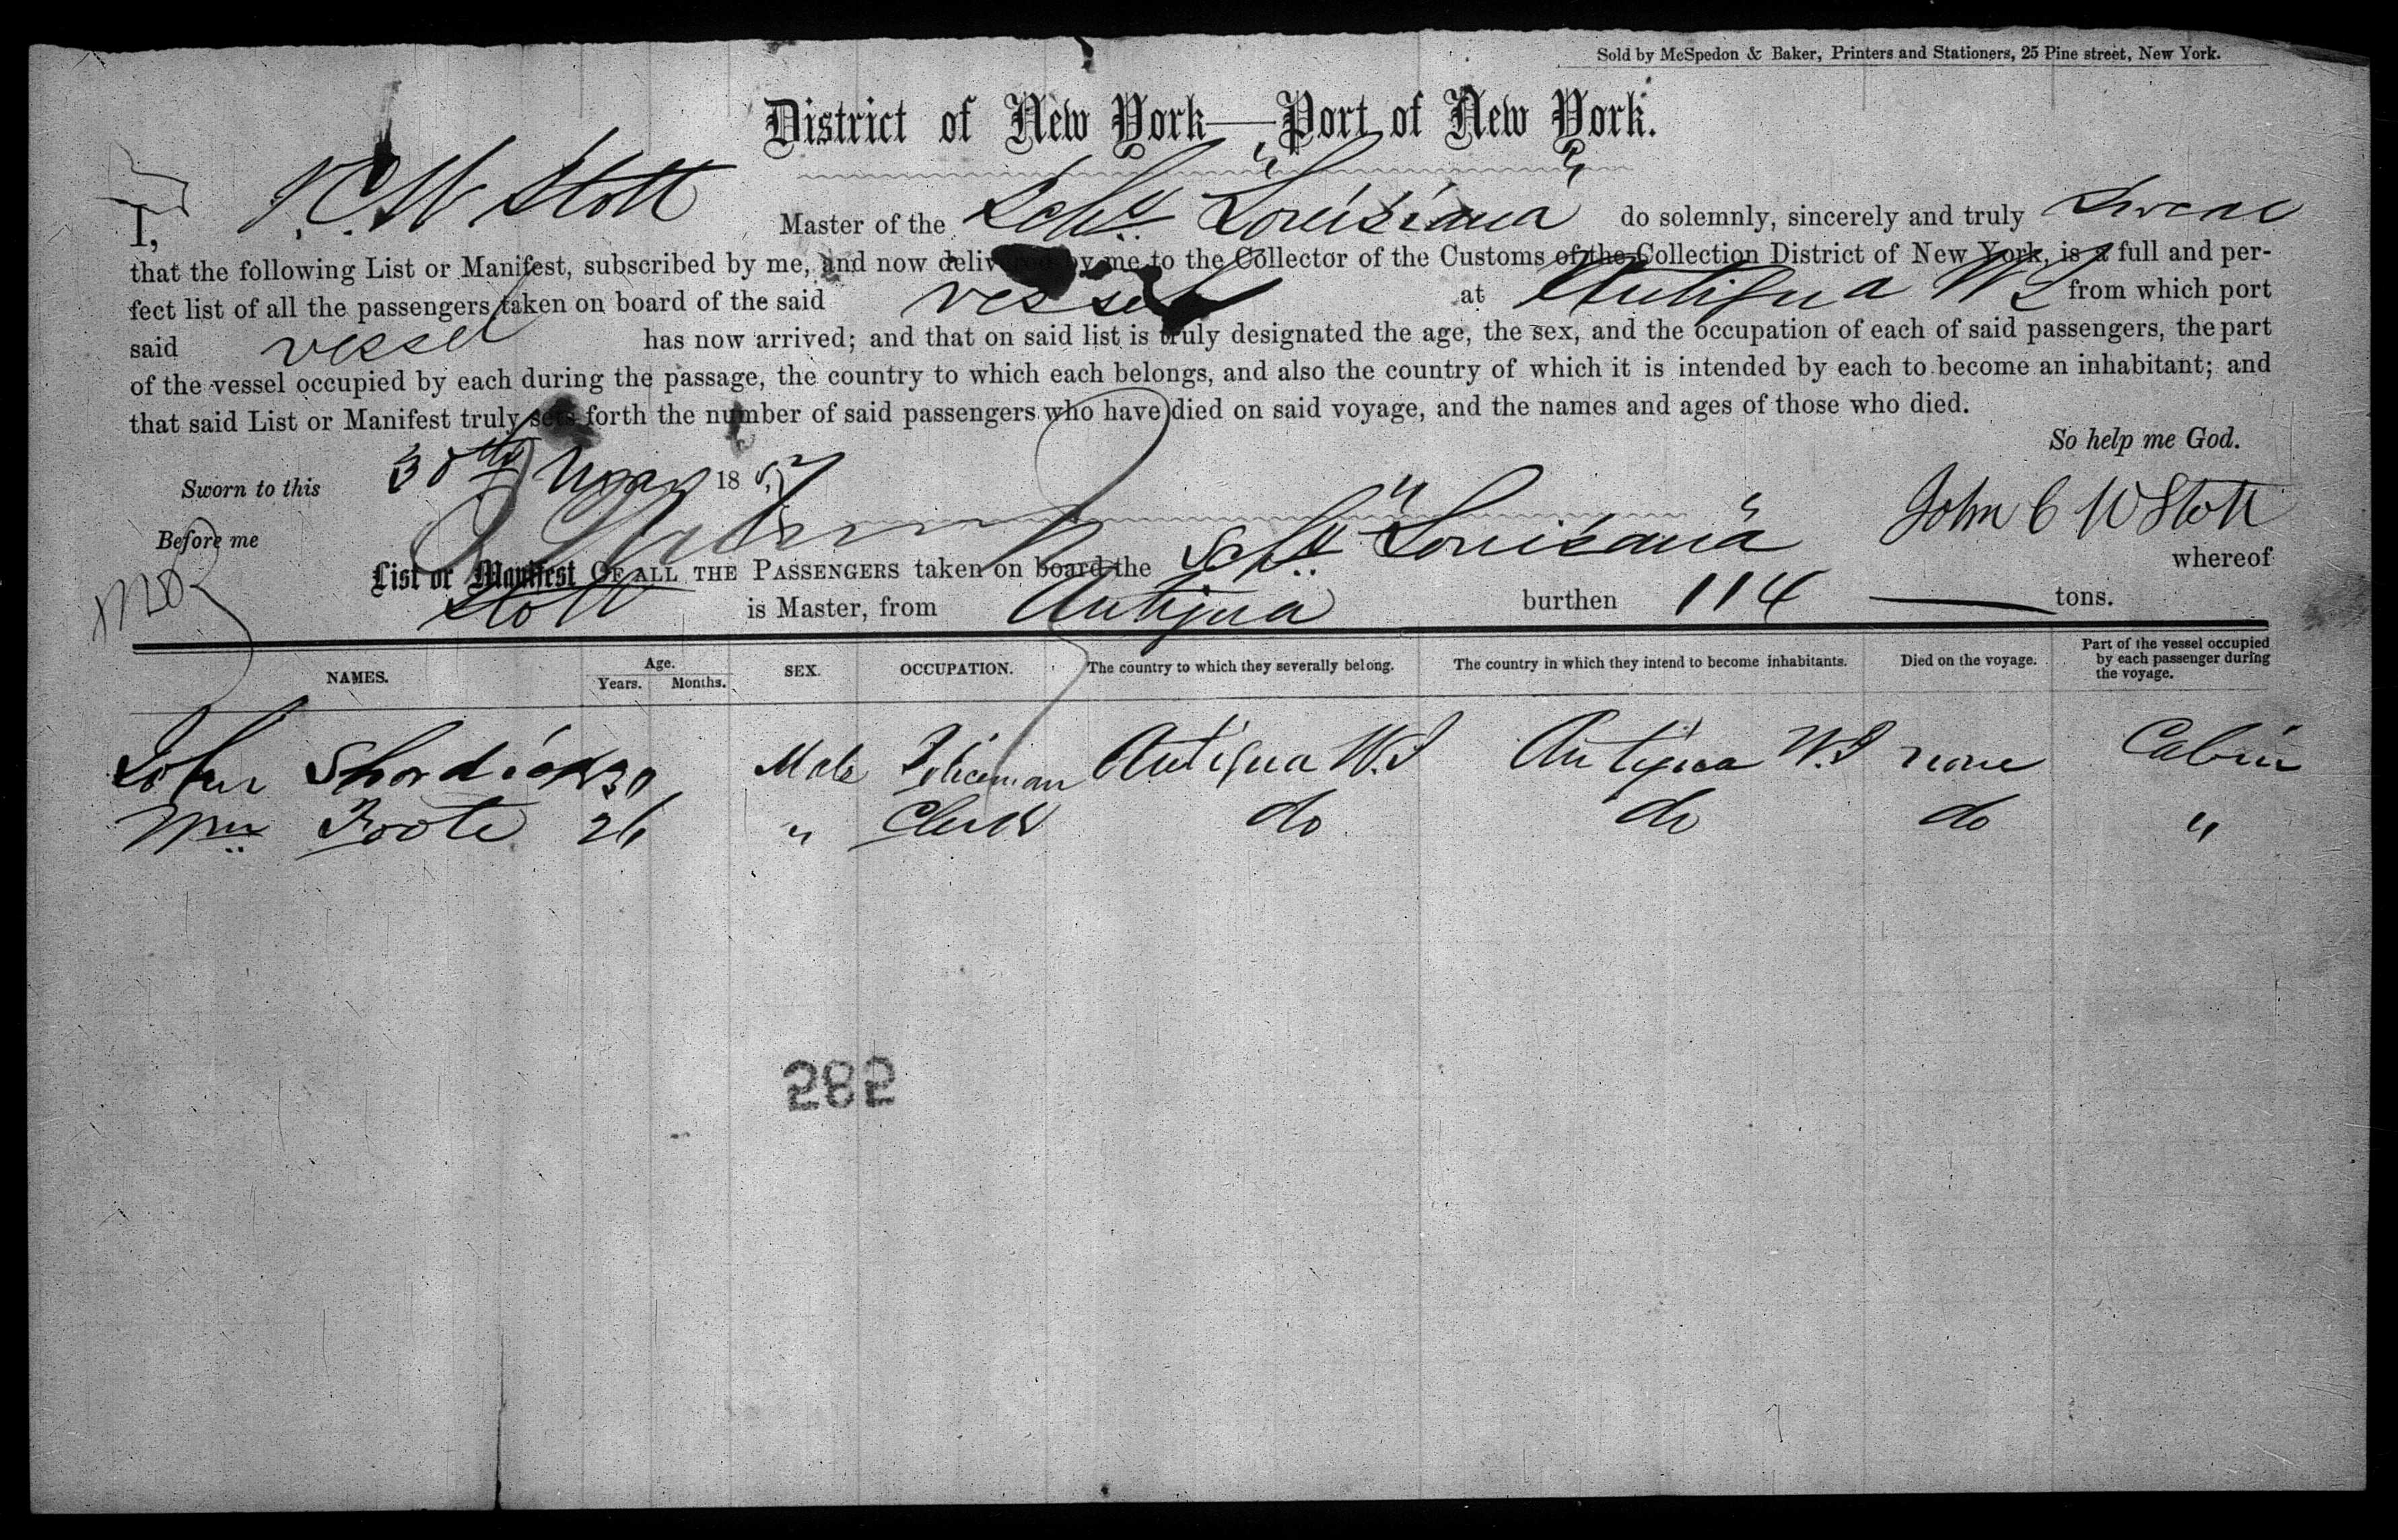 Sold by McSpedon & Baker, Printers and Stationers, 25 Pine street, New York.
District of New York—Port of New York.
I, J. C. W Stott Master of the Schr "Louisiana" do solemnly, sincerely and truly Swear
that the following List or Manifest, subscribed by me, and now delivered by me to the Collector of the Customs of the Collection District of New York, is a full and per-
fect list of all the passengers taken on board of the said vessel at Antigua W I from which port
said vessel has now arrived; and that on said list is truly designated the age, the sex, and the occupation of each of said passengers, the part
of the vessel occupied by each during the passage, the country to which each belongs, and also the country of which it is intended by each to become an inhabitant; and
that said List or Manifest truly sets forth the number of said passengers who have died on said voyage, and the names and ages of those who died.
So help me God.
Sworn to this 30th May 1857
John C W Stott
Before me
List or Manifest OF ALL THE PASSENGERS taken on board the Schr "Louisiana" whereof
Stott is Master, from Antigua burthen 114 tons.
NAMES. Age. Years. Months. SEX. OCCUPATION. The country to which they severally belong. The country in which they intend to become inhabitants. Died on the voyage. Part of the vessel occupied by each passenger during the voyage.
John 30 Male Policeman Antigua W.I Antigua W.I none Cabin
Wm Foote 26 " Clerk do do do "
282